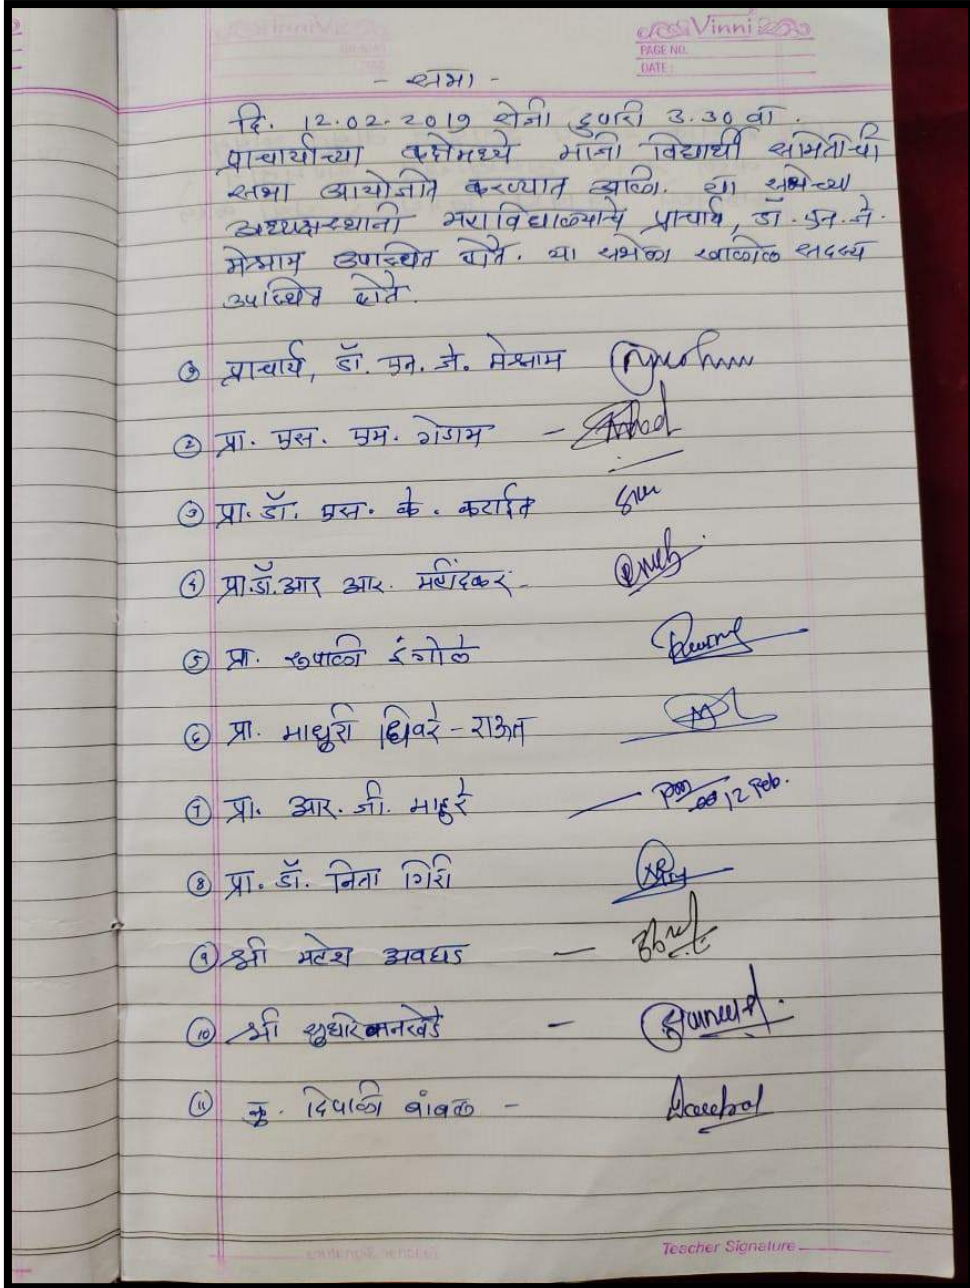 Vinni
PAGE NO.
DATE:
- सभा -
दि. 12.02.2019 रोजी दुपारी 3.30 वा.
प्राचार्यांच्या कक्षेमध्ये माजी विद्यार्थी समितीची
सभा आयोजीत करण्यात आली. या सभेच्या
अध्यक्षस्थानी महाविद्यालयाचे प्राचार्य, डॉ. एन. जे.
मेश्राम उपस्थित होते. या सभेला खालील सदस्य
उपस्थित होते.
① प्राचार्य, डॉ. एन. जे. मेश्राम
② प्रा. एस. एम. गेडाम -
③ प्रा. डॉ. एस. के. कटाईत
④ प्रा.डॉ. आर आर.
⑤ प्रा. रुपाली इंगोले
⑥ प्रा. माधुरी धिवरे - राऊत
⑦ प्रा. आर. जी. माहुरे — 12 Feb.
⑧ प्रा. डॉ. निता गिरी
⑨ श्री महेश अवघड —
⑩ श्री सुधीर वानखेडे -
⑪ कु. दिपाली बांबल -
Teacher Signature